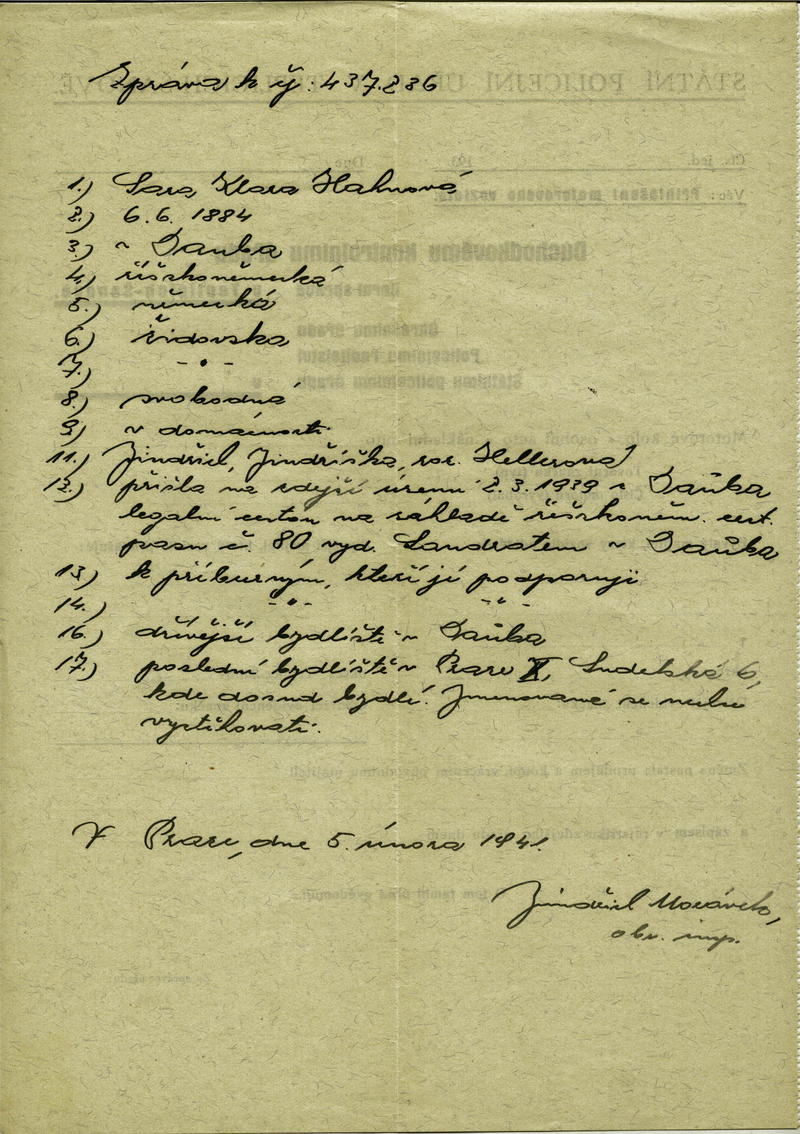 Zpráva k čj: 437.236
1.) Sara Klara Hahnová
2.) 6.6. 1884
3.) v Dauba
4.) říšskoněmecká
5.) německá
6.) židovská
7.) - " -
8.) svobodná
9.) v domácnosti.
11.) Jindřich, Jindřiška, roz. Hellerová
12.) přišla na zdejší území 2.3.1939 z Dauba
legální cestou na základě říšskoněm. cest.
pasu č. 80 vyd. Landratem v Dauba
13.) k příbuzným, kteří jí podporují
14.) - " - - " -
16.) dřívější bydliště v Dauba
17.) poslední bydliště v Praze X, 6,
kde dosud bydlí. Jmenovaná se nechce
vystěhovati.
V Praze, dne 5. února 1941.
Jindřich Morávek,
obv. insp.